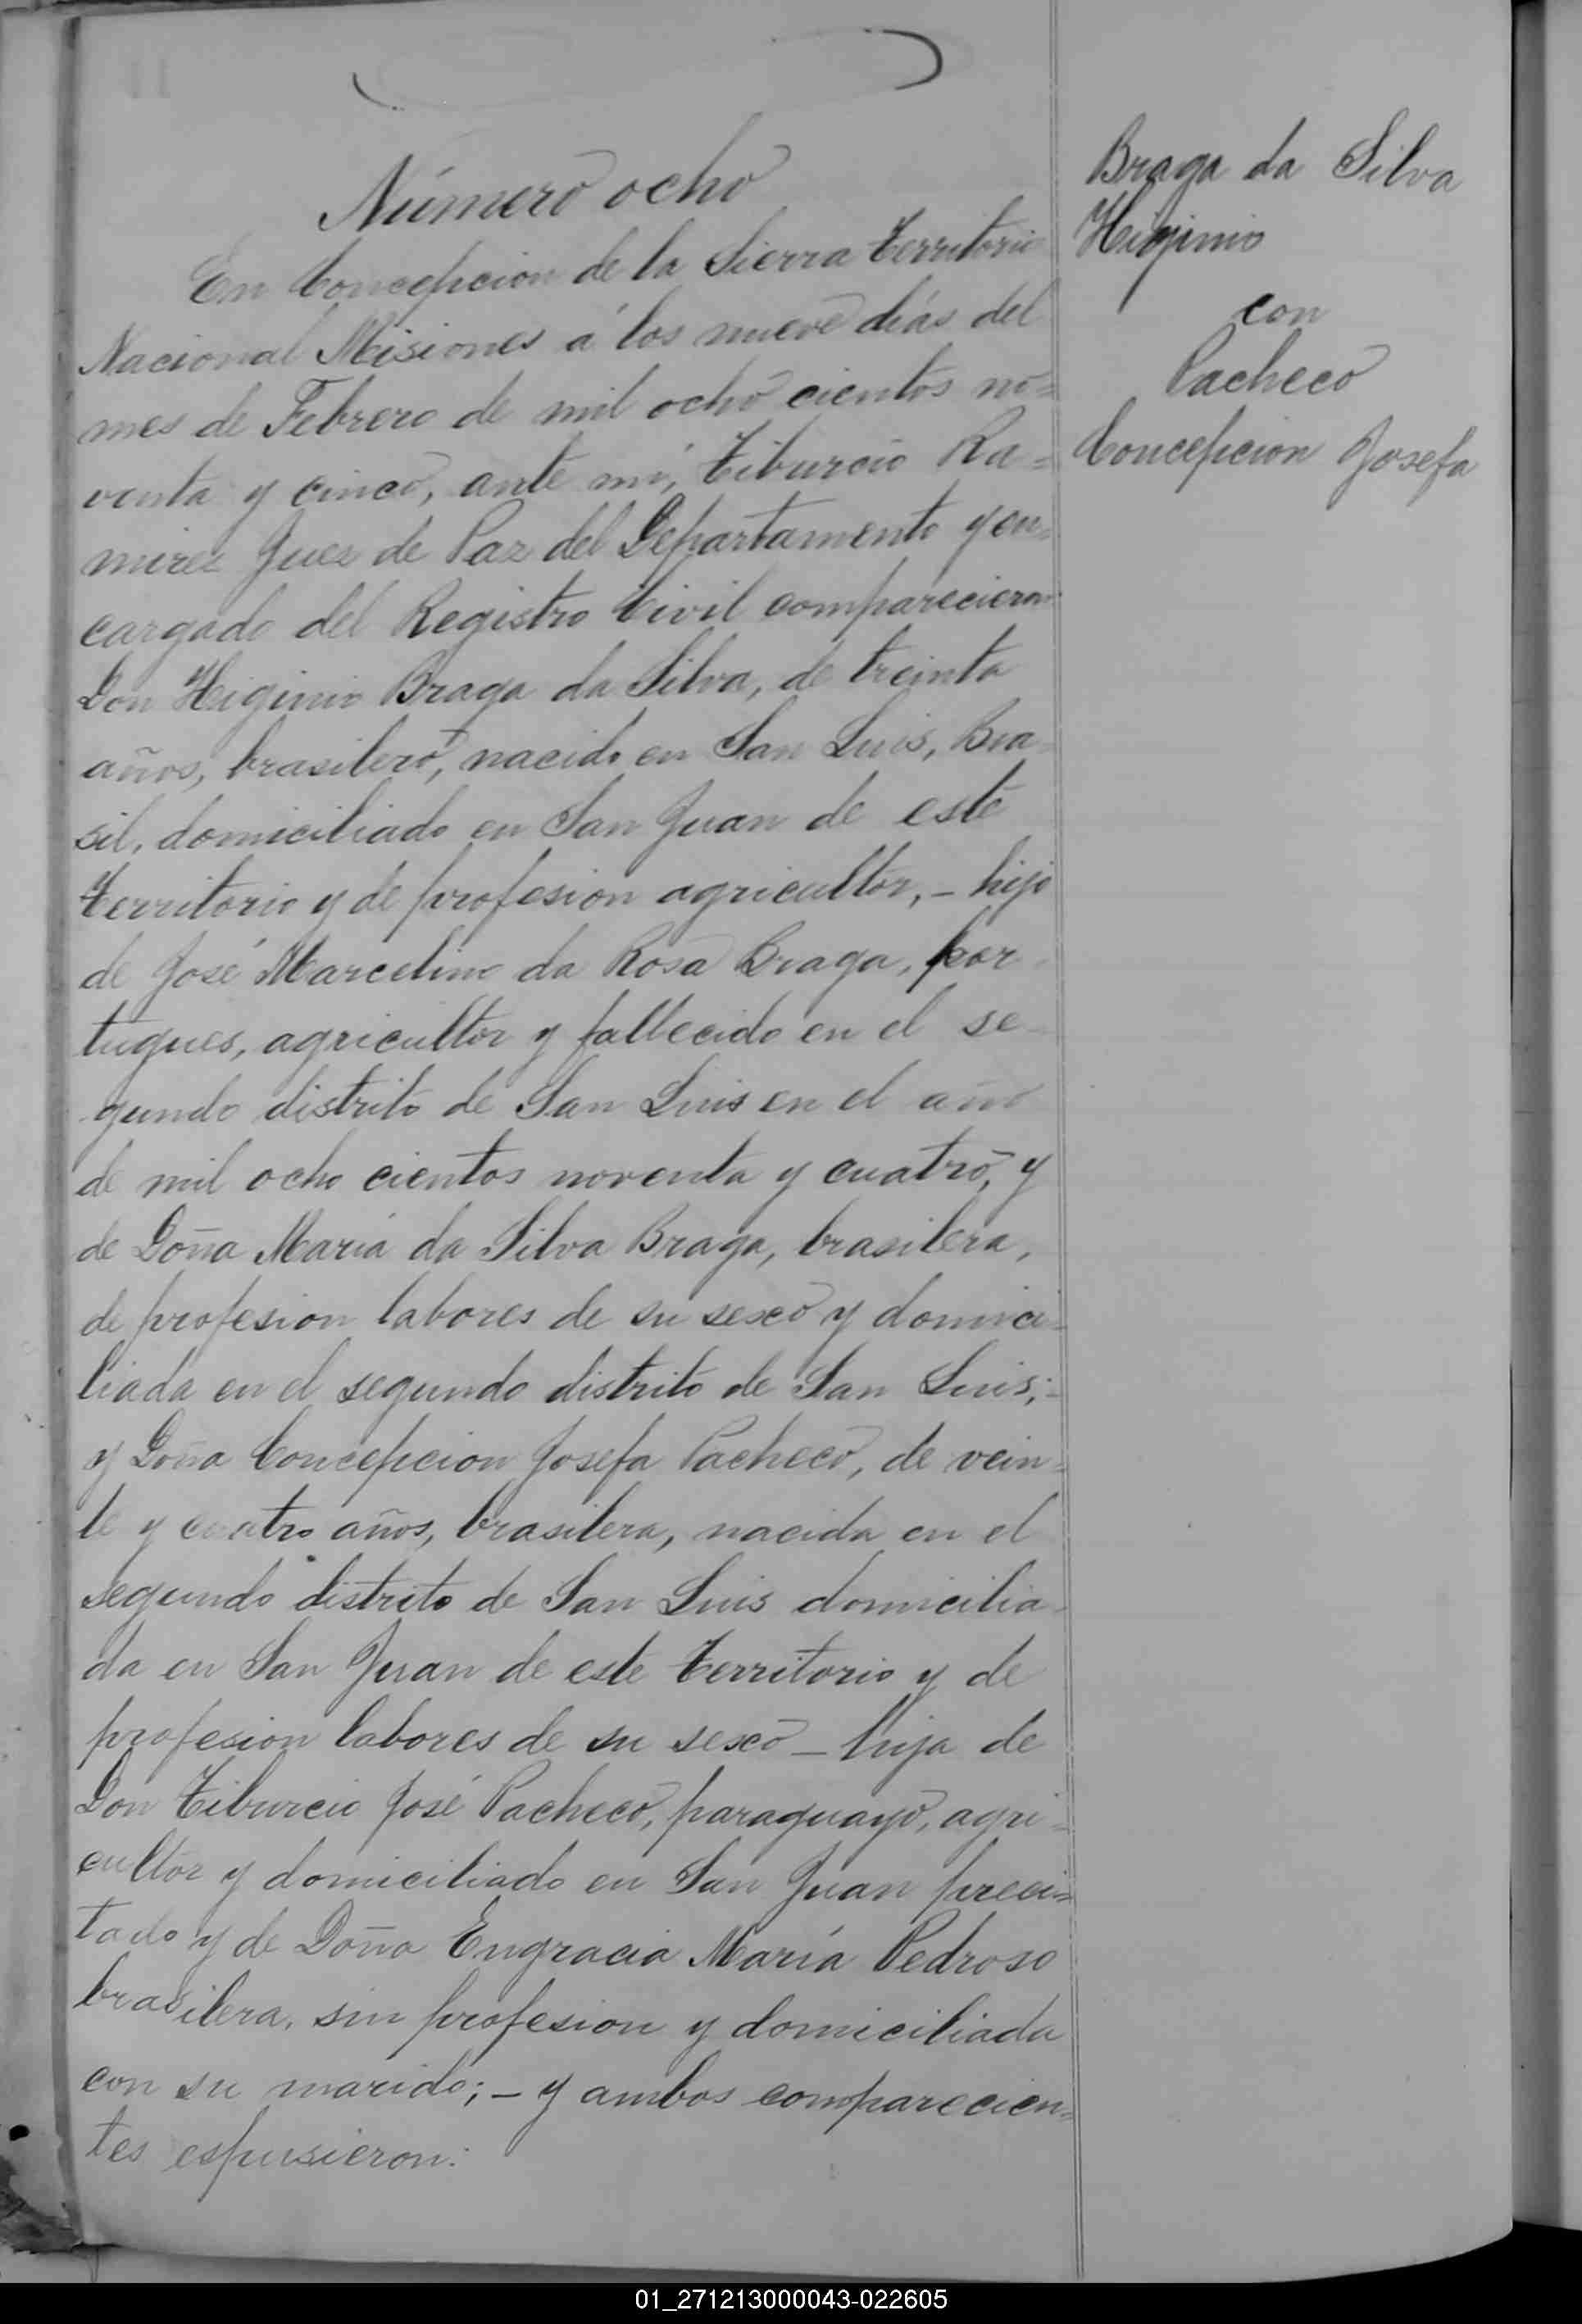 Número ocho
En Concepcion de la Sierra territorio
Nacional Misiones á los nueve dias del
mes de Febrero de mil ocho cientos no=
venta y cinco, ante mi, Tiburcio Ra=
mirez Juez de Paz del Departamento y en=
cargado del Registro Civil comparecieron
Don Higinio Braga da Silva, de treinta
años, brasilero, nacido en San Luis, Bra=
sil, domiciliado en San Juan de este
territorio y de profesion agricultor, - hijo
de José Marcelino da Rosa Braga, por
tugues, agricultor y fallecido en el se-
gundo distrito de San Luis en el año
de mil ocho cientos noventa y cuatro, y
de Doña María da Silva Braga, brasilera,
de profesion labores de su sexo y domici=
liada en el segundo distrito de San Luis;-
y Doña Concepcion Josefa Pacheco, de vein=
te y cuatro años, brasilera, nacida en el
segundo distrito de San Luis domicilia-
da en San Juan de este territorio y de
profesion labores de su sexo - hija de
Don Tiburcio José Pacheco, paraguayo, agri=
cultor y domiciliado en San Juan preci=
tado y de Doña Engracia María Pedroso
brasilera, sin profesion y domiciliada
con su marido; - y ambos comparecien=
tes espusieron:
Braga da Silva
Higinio
con
Pacheco
Concepcion Josefa
01_271213000043-022605